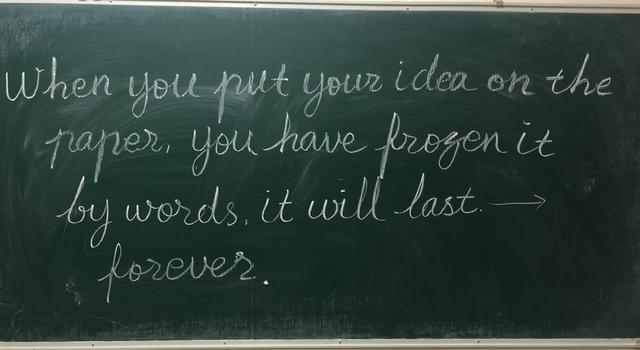 When you put your idea on the
paper, you have frozen it
by words, it will last. →
forever.